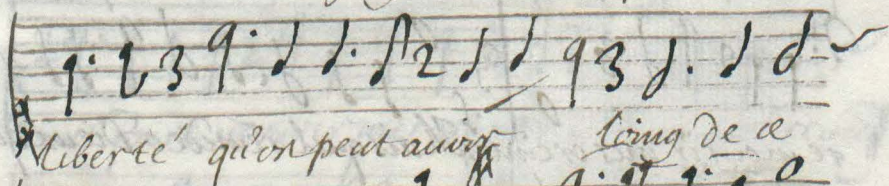 liberté qu'on peut auoir loing de ce